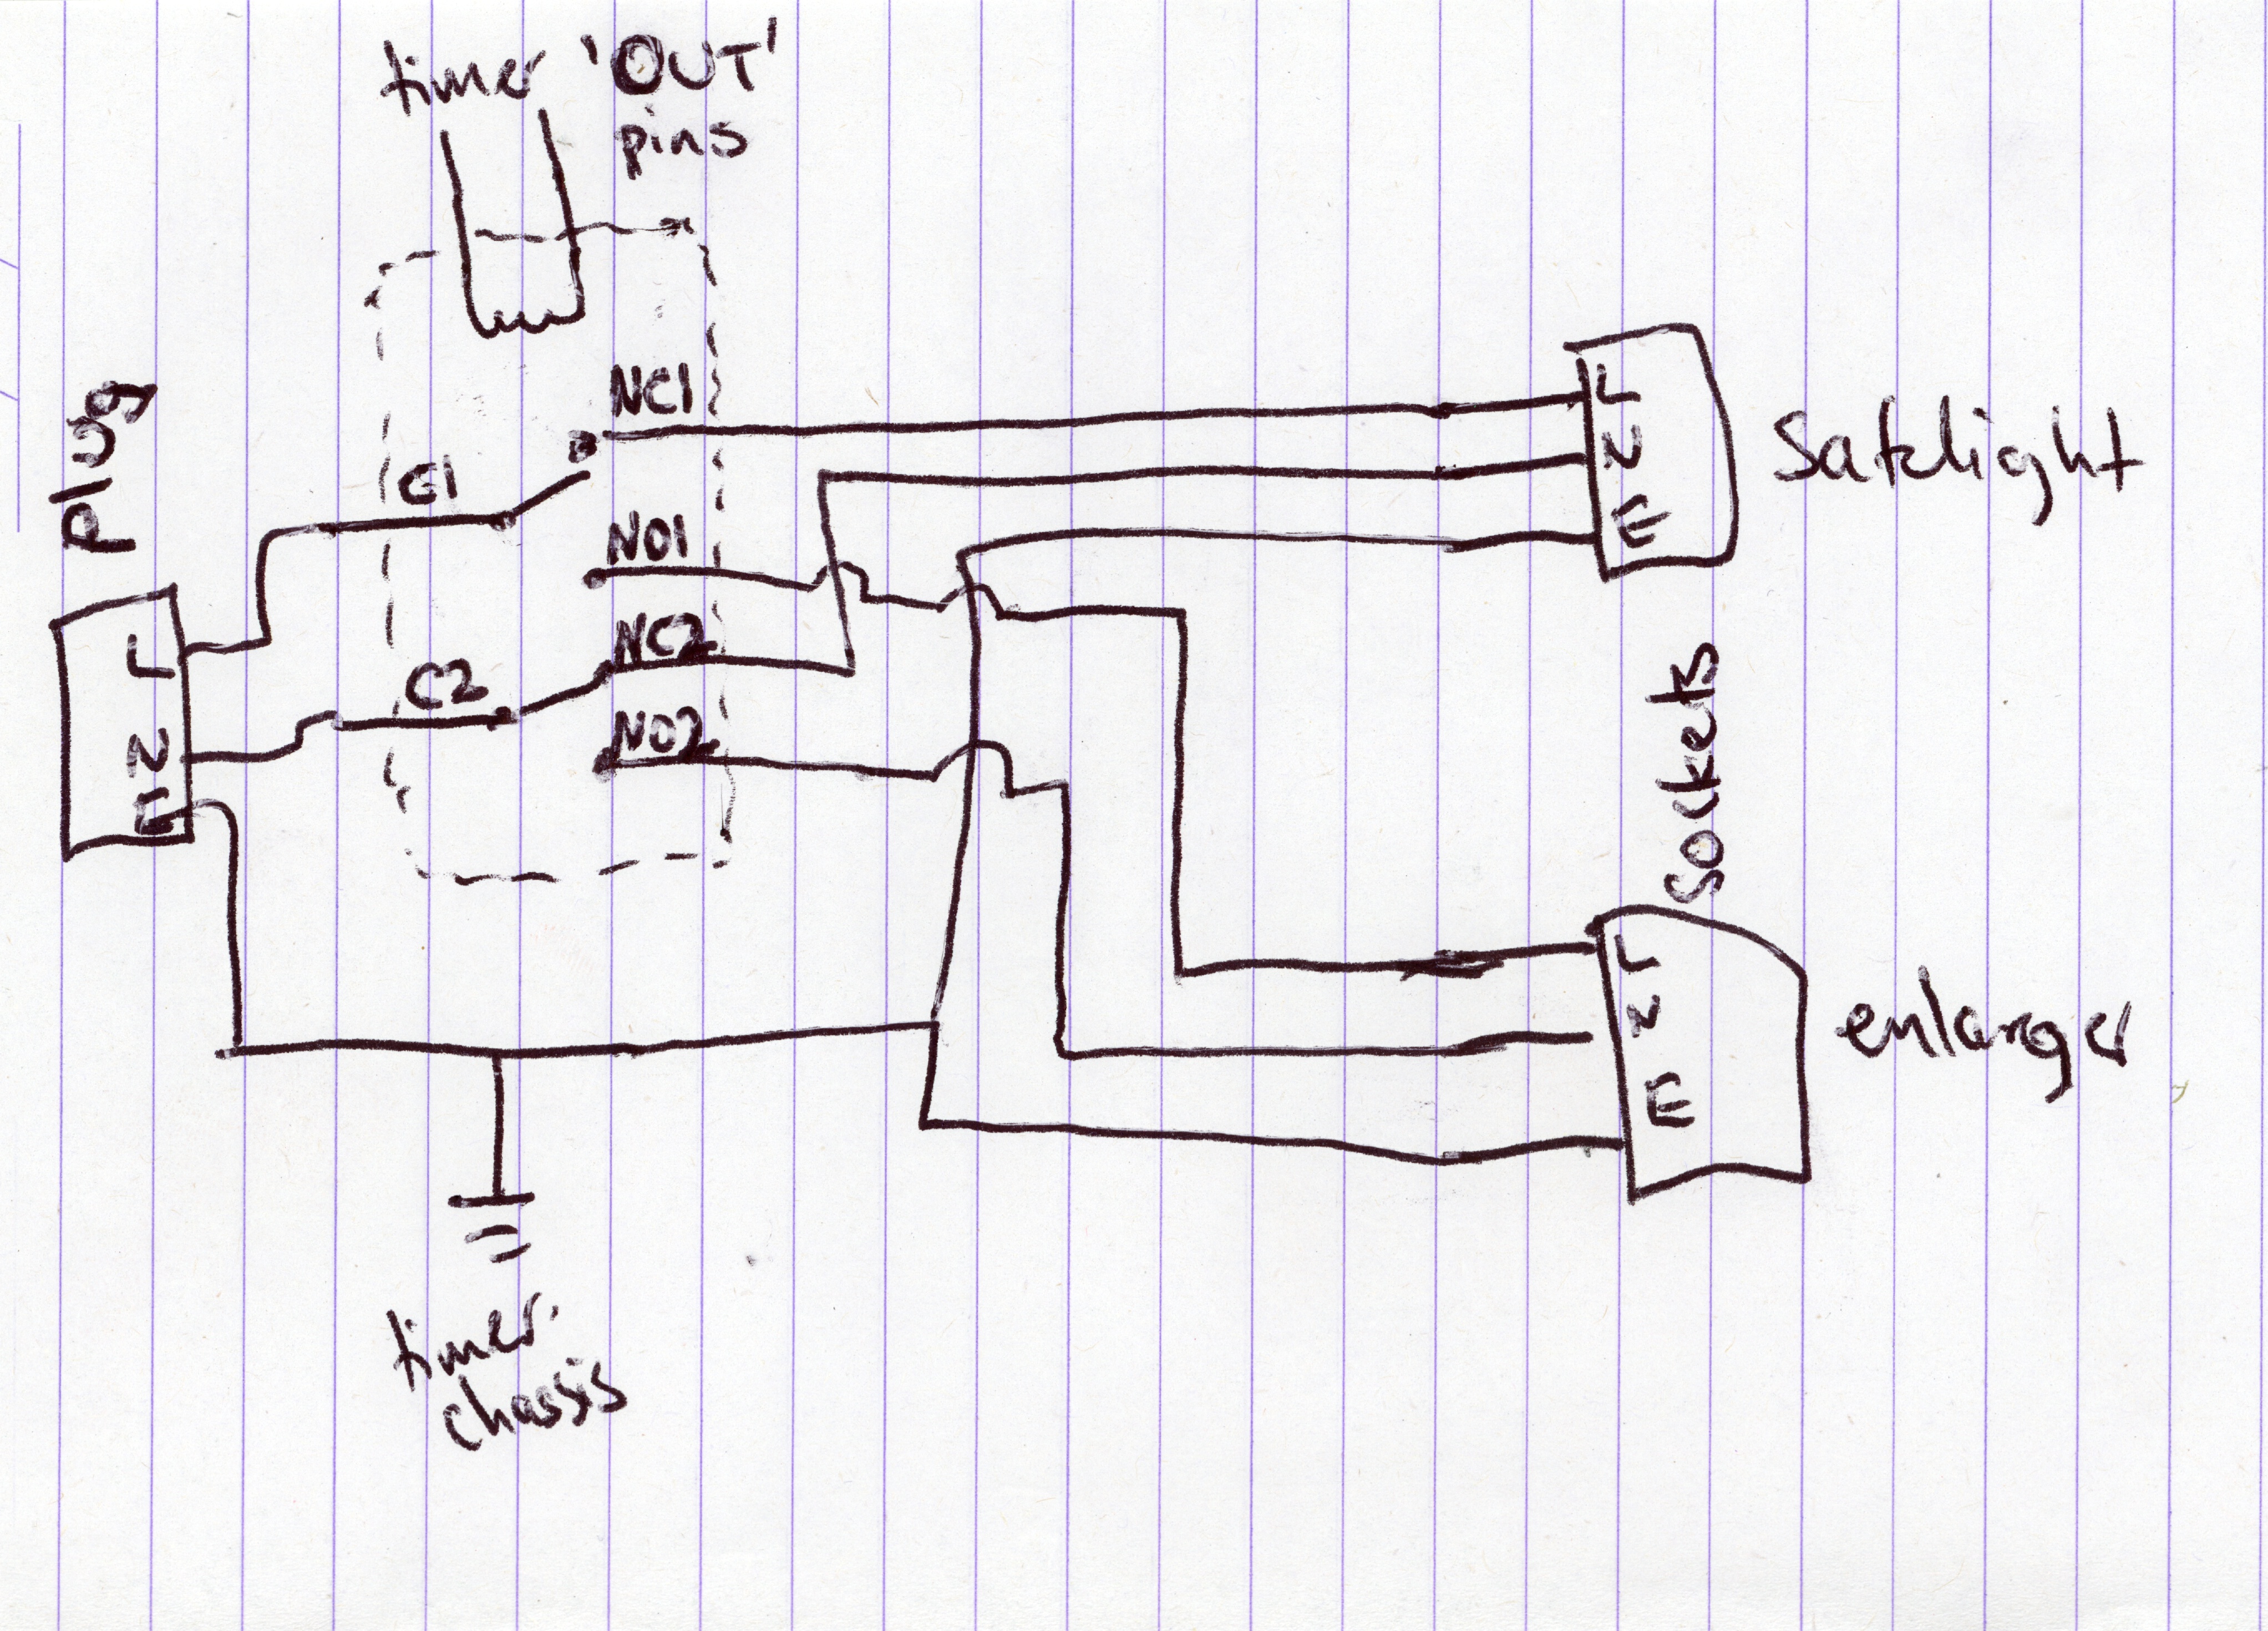 timer 'OUT'
pins
Plug
L
N
E
C1
C2
NC1
NO1
NC2
NO2
L
N
E
Safelight
Sockets
L
N
E
enlarger
timer
chassis